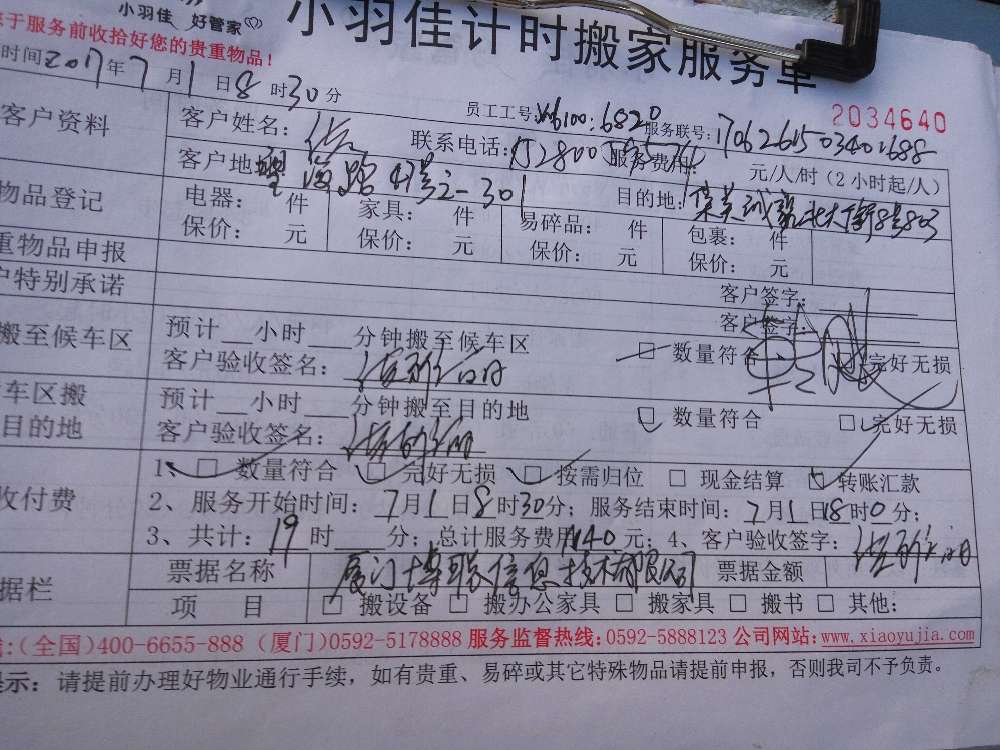 小羽佳 好管家
小羽佳计时搬家服务单
于服务前收拾好您的贵重物品!
时间2017年7月1日8时30分
员工工号: 服务联号:
2034640
客户资料 客户姓名: 联系电话: 服务费用: 元/人/时(2小时起/人)
客户地 目的地:
物品登记 电器: 件 家具: 件 易碎品: 件 包裹: 件
保价: 元 保价: 元 保价: 元 保价: 元
重物品申报 客户签字:
户特别承诺 客户签字:
搬至候车区 预计__小时___分钟搬至候车区 □数量符合 完好无损
客户验收签名:
车区搬 预计__小时___分钟搬至目的地 □数量符合 □完好无损
目的地 客户验收签名:
1、□数量符合 □完好无损 □按需归位 □现金结算 □转账汇款
收付费 2、服务开始时间:7月1日8时30分;服务结束时间:7月1日18时0分;
3、共计:19时___分;总计服务费用1140元;4、客户验收签字:
据栏 票据名称 厦门博联信息技术有限公司 票据金额
项 目 □搬设备 □搬办公家具 □搬家具 □搬书 □其他:
:(全国)400-6655-888 (厦门)0592-5178888 服务监督热线:0592-5888123 公司网站:www.xiaoyujia.com
提示:请提前办理好物业通行手续,如有贵重、易碎或其它特殊物品请提前申报,否则我司不予负责。